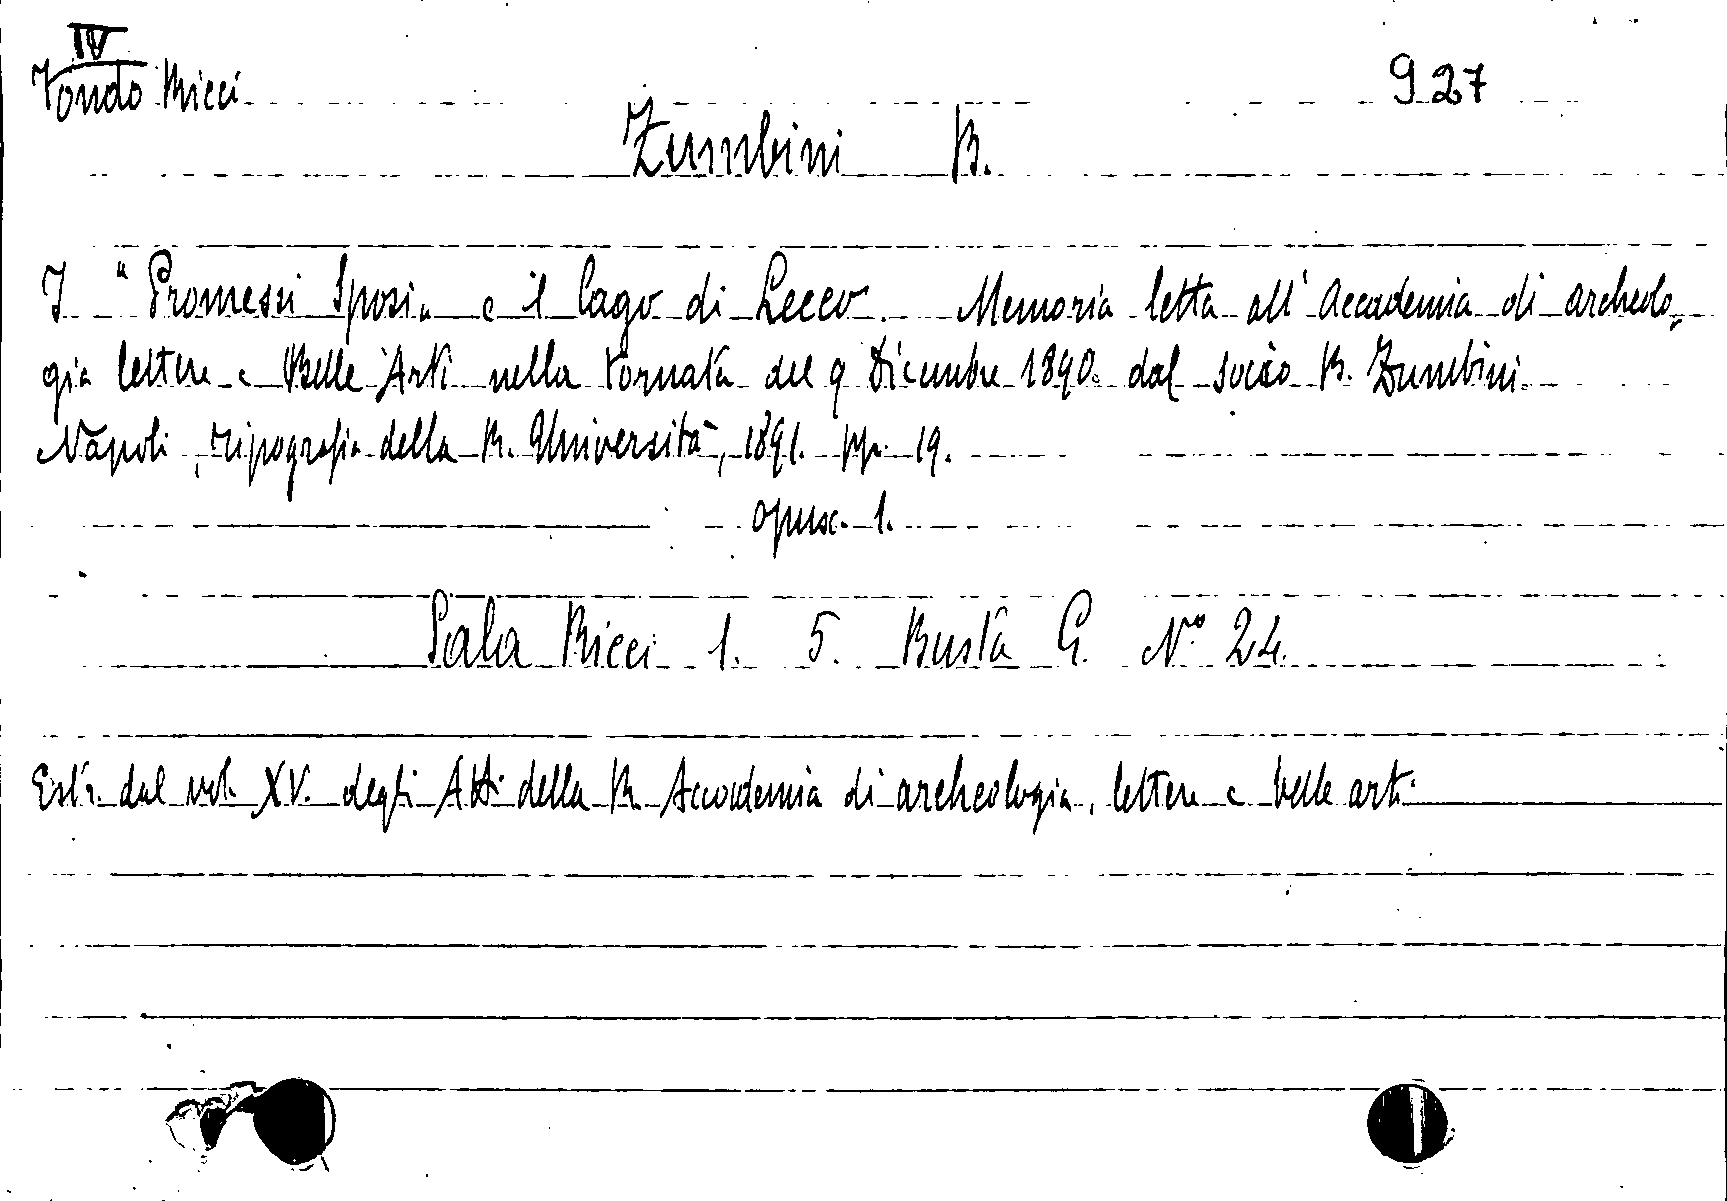 IV
Fondo Ricci
927
Zumbini B.
I "Promessi Sposi" e il lago di Lecco. Memoria letta all'Accademia di archeolo-
gia lettere e Belle Arti nella tornata del 9 Dicembre 1890. dal socio B. Zumbini.
Napoli, Tipografia della R. Università, 1891. pp. 19.
opusc. 1.
Sala Ricci 1. 5. Busta G. N° 24.
Estr. dal vol. XV. degli Atti della R. Accademia di archeologia, lettere e belle arti.